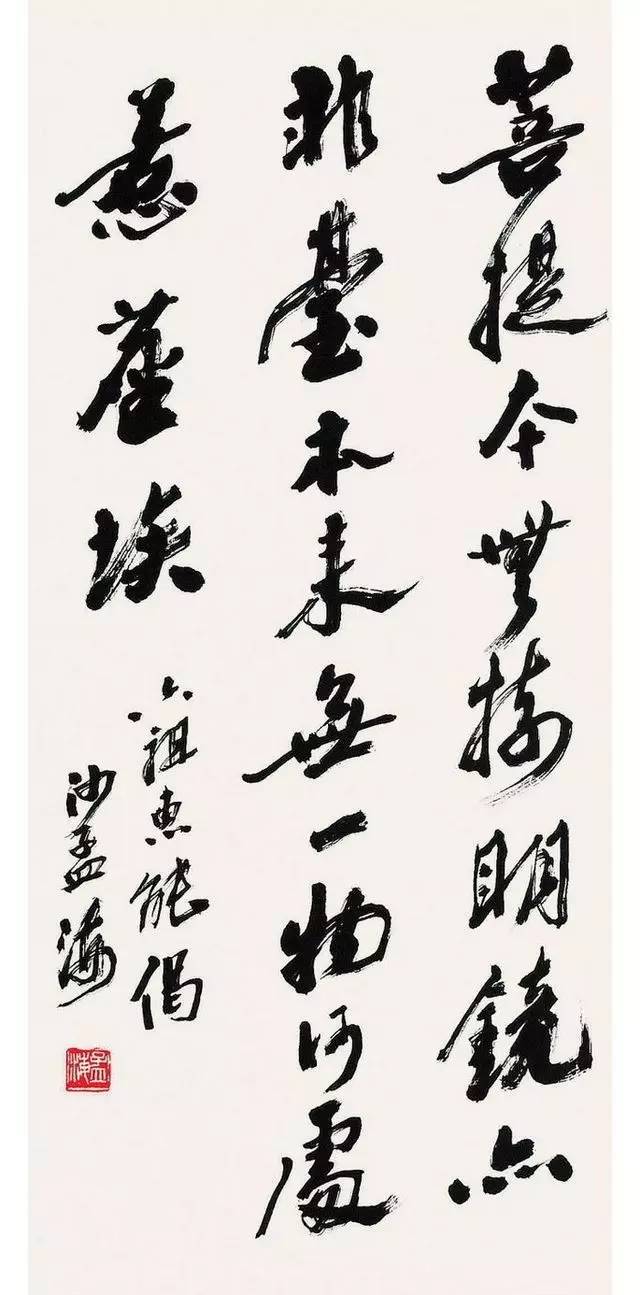 菩提本無樹明鏡亦
非臺本來無一物何處
惹塵埃
六祖惠能偈
沙孟海
孟海